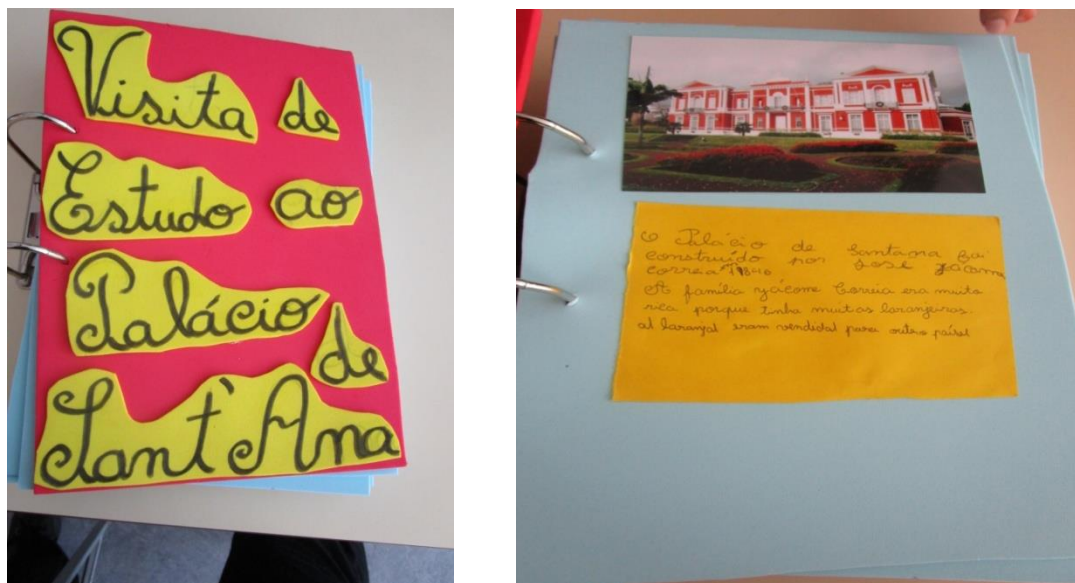 Visita de
Estudo ao
Palácio
de
Sant'Ana
O Palácio de Santana foi
construído por José Jácome
Correia 1846
A família Jácome Correia era muito
rica porque tinha muitas laranjeiras.
as laranjas eram vendidas para outro países